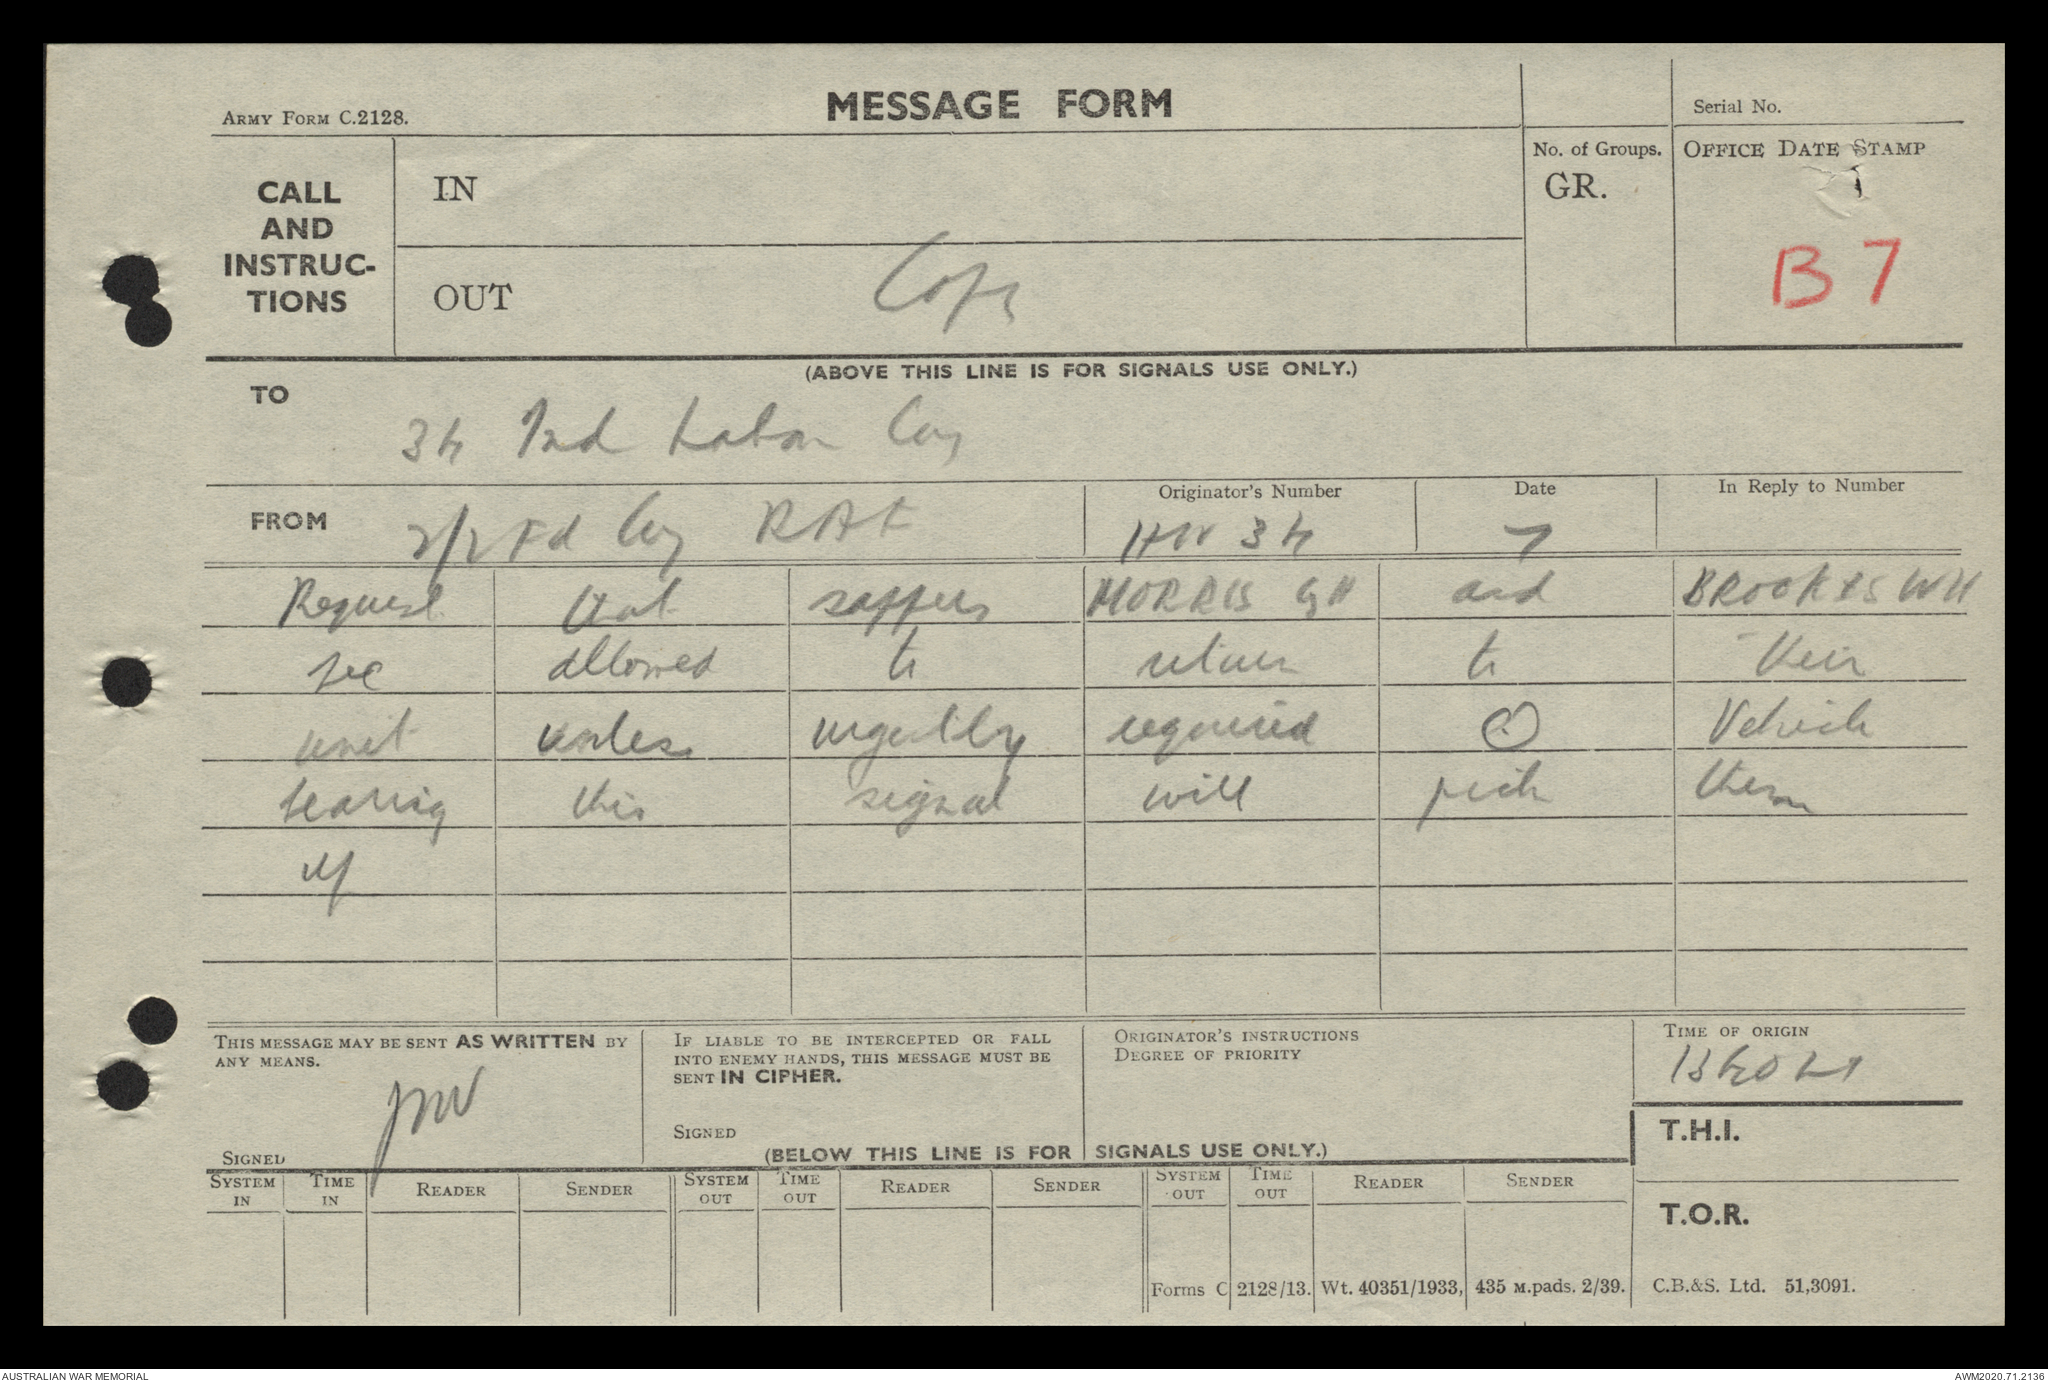 MESSAGE FORM
ARMY FORM C.2128.
Serial No.
CALL AND INSTRUC-TIONS
IN
No. of Groups.
GR.
OFFICE DATE STAMP
OUT
Copy
B7
(ABOVE THIS LINE IS FOR SIGNALS USE ONLY.)
TO
34 Ind Labour Coy
FROM
2/2 Fd Coy RAE
Originator's Number
HW 34
Date
7
In Reply to Number
Request that sappers MORRIS GH and BROOKES WH
be allowed to return to their
unit unless urgently required . Vehicle
bearing this signal will pick them
up
THIS MESSAGE MAY BE SENT AS WRITTEN BY
ANY MEANS.
SIGNED
IF LIABLE TO BE INTERCEPTED OR FALL
INTO ENEMY HANDS, THIS MESSAGE MUST BE
SENT IN CIPHER.
SIGNED
ORIGINATOR'S INSTRUCTIONS
DEGREE OF PRIORITY
TIME OF ORIGIN
(BELOW THIS LINE IS FOR SIGNALS USE ONLY.)
T.H.I.
T.O.R.
SYSTEM IN TIME IN READER SENDER SYSTEM OUT TIME OUT READER SENDER SYSTEM OUT TIME OUT READER SENDER
Forms C 2128/13. Wt. 40351/1933, 435 M.pads. 2/39. C.B.&S. Ltd. 51,3091.
AUSTRALIAN WAR MEMORIAL
AWM2020.71.2136